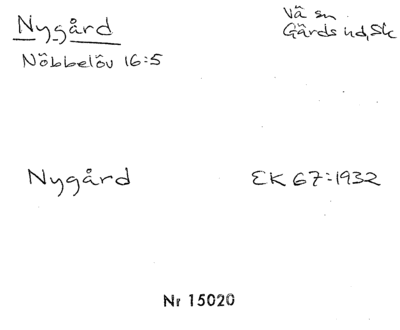 Nygård
Vä sn
Gärds hd, Sk
Nöbbelöv 16:5
Nygård
EK 67:1932
Nr 15020